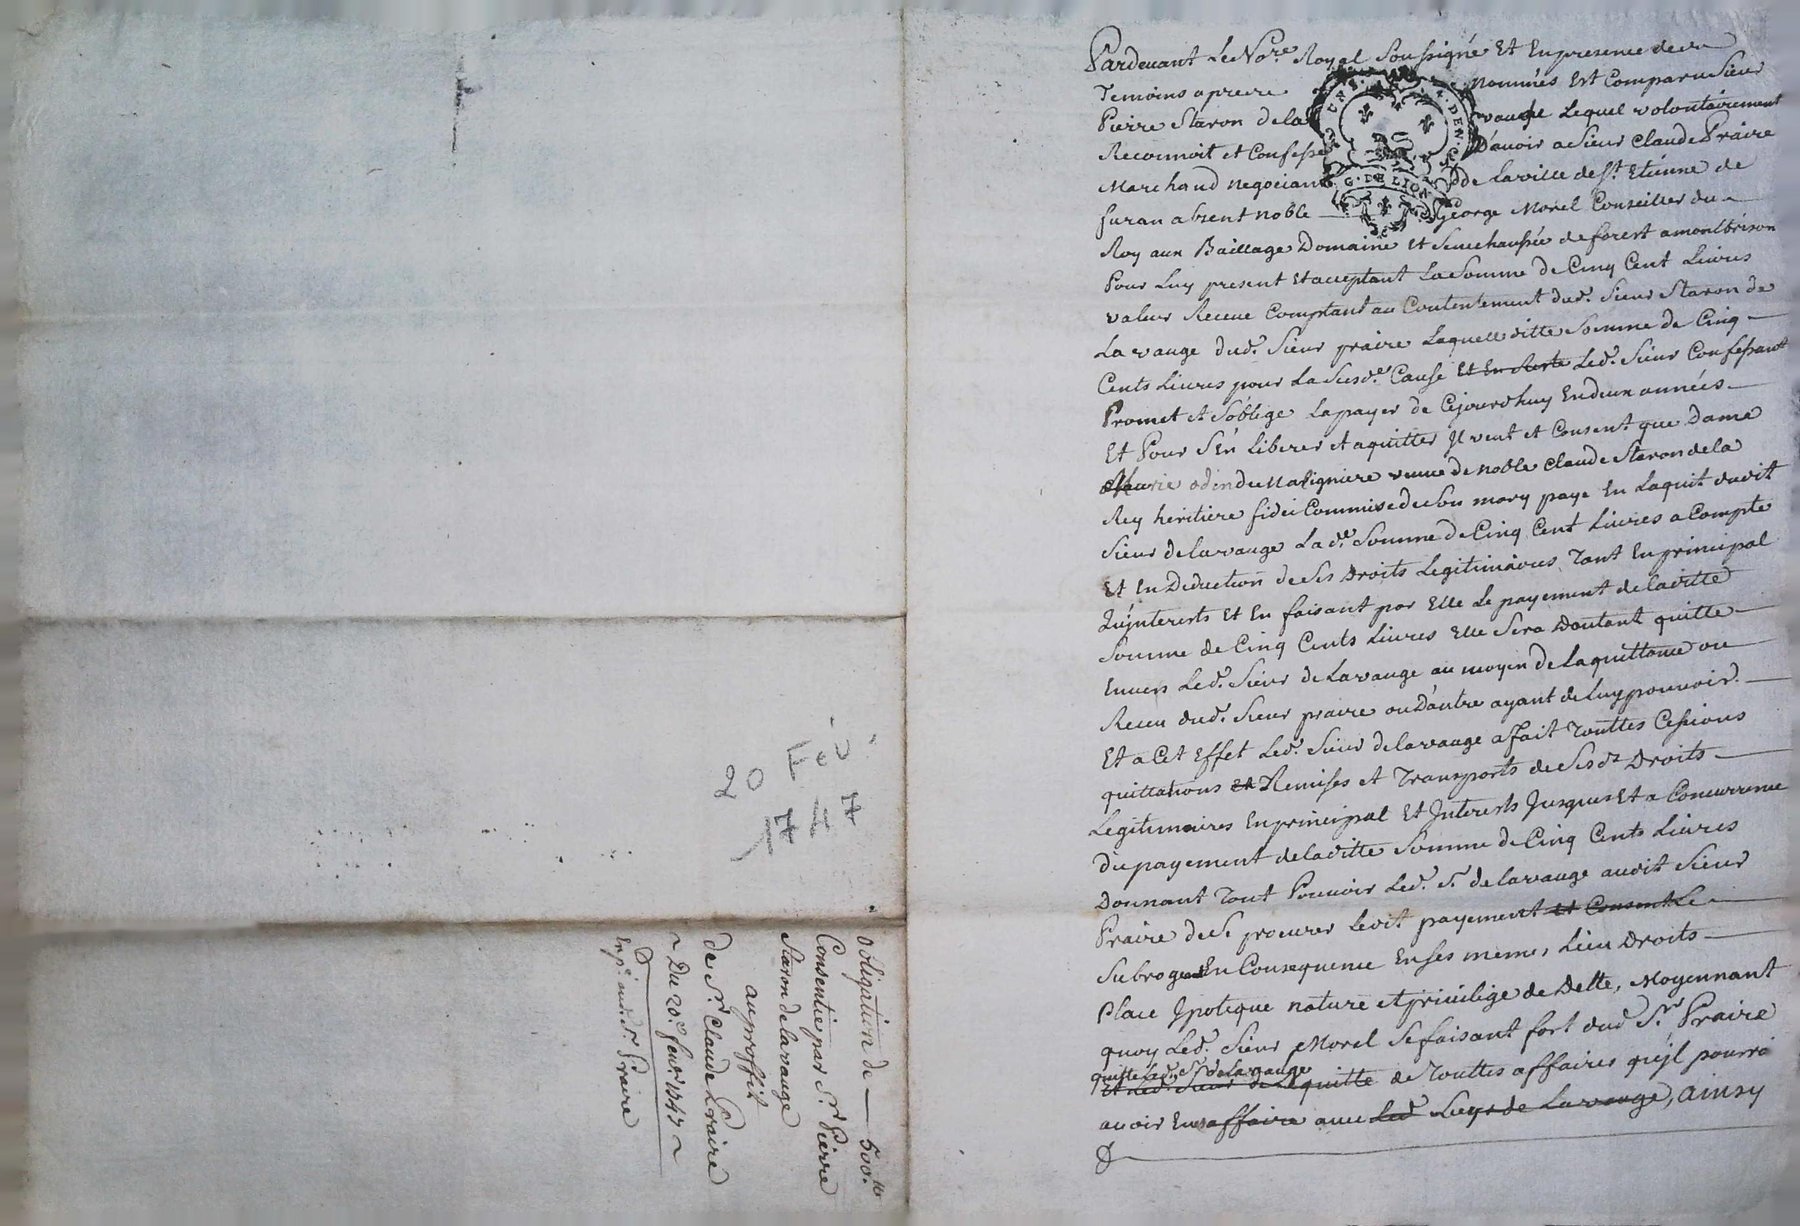 Pardevant Le No.re Royal Soussigné Et En presence de
Temoins apres nommés Est Comparu Sieur
Pierre Staron de la vauge Lequel volontairement
Reconnoit et Confesse D'avoir a Sieur Claude Praire
Marchand negociant de Laville de St. Etienne de
furan absent noble George Morel Conseiller du
Roy aux Baillage Domaine et Senechaussée de forest a montbrison
Pour Luy present et acceptant La Somme de Cinq Cent Livres
valeur Receue Comptant au Contentement dud. Sieur Staron de
La vauge dud. Sieur praire Laquelle ditte Somme de Cinq
Cents Livres pour La Susd.e Cause Et En Reste Led. Sieur Confessant
Promet et S'oblige La payer de Cejourdhuy En deux années
Et Pour S'En Liberer et aquitter Il veut et Consent que Dame
Marie odin du Maligniere veuve de noble Claude Staron de la
Rey heritiere fidei Commise de Son mary paye En Laquit dudit
Sieur de Lavauge Lad.e Somme de Cinq Cent Livres a Compte
Et En Deduction de Ses Droits Legitimaires Tant En principal
Qu'jnterests Et En faisant par Elle Le payement de Laditte
Somme de Cinq Cents Livres Elle Sera Dautant quitte
Envers Led. Sieur de Lavauge au moyen de La quittance ou
Receu dud. Sieur praire ou D'autre ayant de Luy pouvoir.
Et a Cet Effet Led. Sieur de lavauge a fait Touttes Cessions
quittations et Remises et Transports de Sesd.s Droits
Legitimaires En principal Et Jnterests Jusques Et a Concurrence
Du payement de laditte Somme de Cinq Cents Livres
Donnant Tout Pouvoir Led. S.r de lavauge audit Sieur
Praire de Se procurer Ledit payement et Consent Le
Subroge En Consequence En Ses memes, Lieu Droits
Place Ipoteque nature et privilige de Dette, Moyennant
quoy Led. Sieur Morel Se faisant fort dud. S.r Praire
quitte Led. S.r de Lavauge
Et Led. Sieur de L quitte de Touttes affaires qu'jl pourroi
avoir Eu affaire avec Led. Sieur de Lavauge, ainsy
20 Fev
1747
obligation de 500.ll
Consentie par S.r Pierre
Staron de lavauge
au proffit
de S.r Claude Praire
Du 20.e fevr 1747
Exp.e aud. S.r Praire
G. DE LION